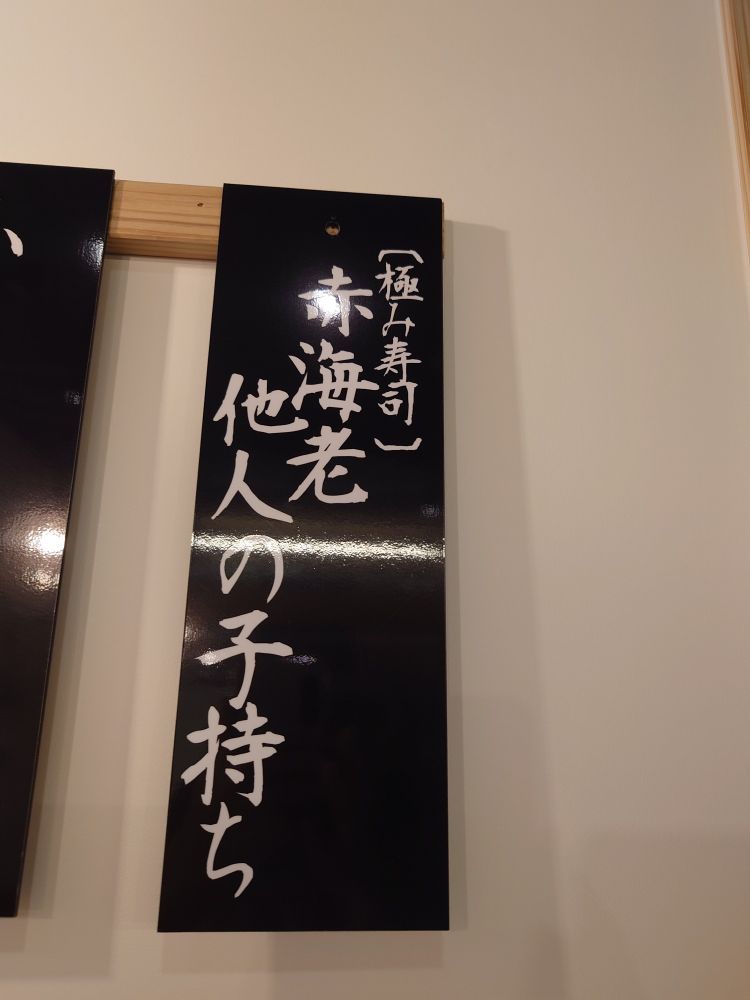 [極み寿司]
赤海老
他人の子持ち